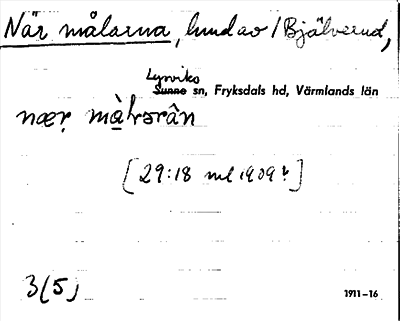 När målarna, lund av / Bjälverud,
Lysviks
Sunne sn, Fryksdals hd, Värmlands län
næṛ
[29:18 ml 1909?]
3(5)
1911–16